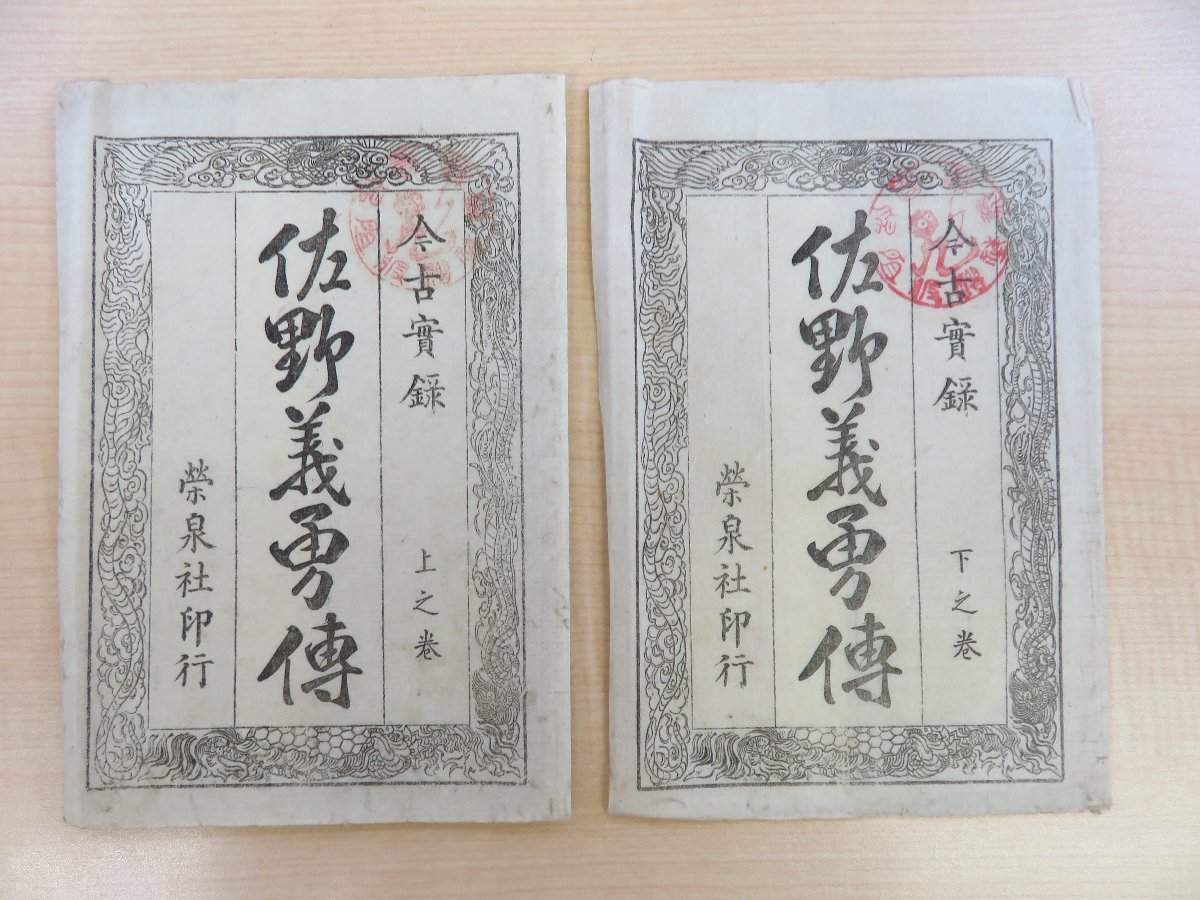 今古實録 上之卷
佐野義勇傳
榮泉社印行
今古實録 下之卷
佐野義勇傳
榮泉社印行